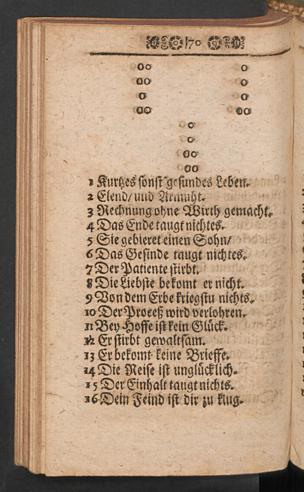 70
1 Kurtzes sonst gesundes Leben.
2 Elend/ und Armuht.
3 Rechnung ohne Wirth gemacht.
4 Das Ende taugt nichtes.
5 Sie gebieret einen Sohn/
6 Das Gesinde taugt nichtes.
7 Der Patiente stirbt.
8 Die Liebste bekomt er nicht.
9 Von dem Erbe kriegstu nichts.
10 Der Proceß wird verlohren.
11 Bey Hoffe ist kein Glück.
12 Er stirbt gewaltsam.
13 Er bekomt keine Brieffe.
14 Die Reise ist unglücklich.
15 Der Einhalt taugt nichts.
16 Dein Feind ist dir zu klug.